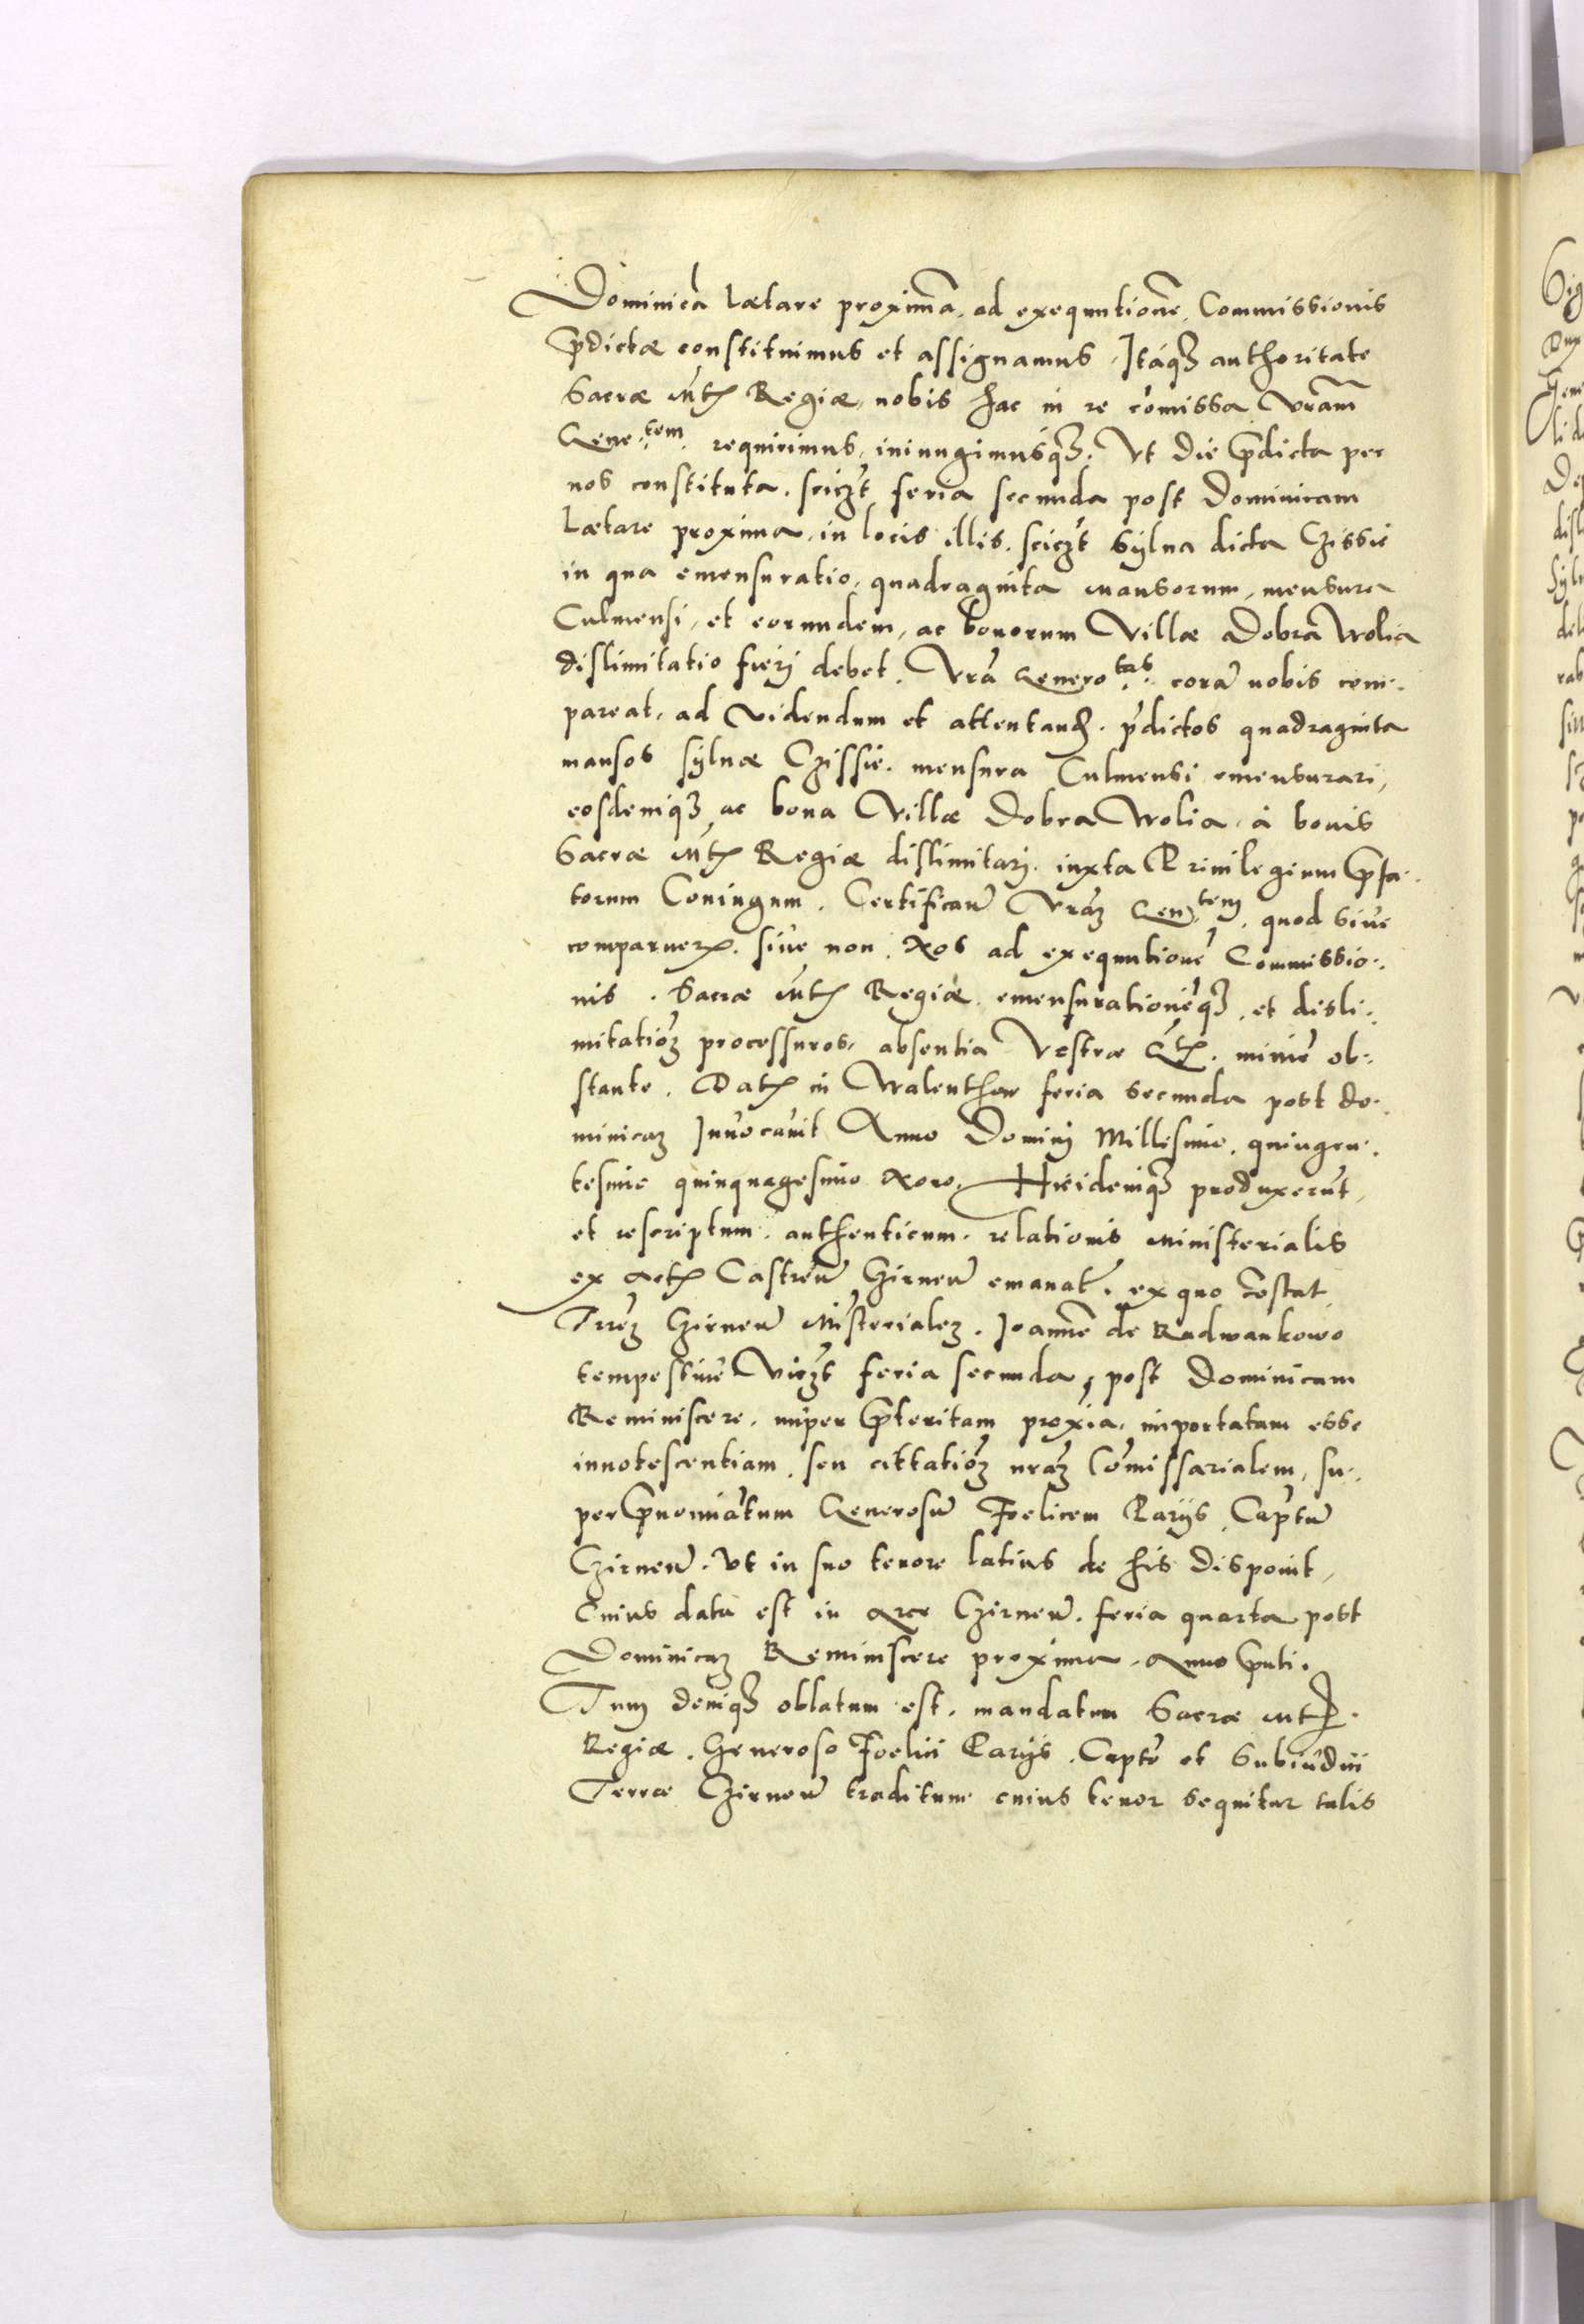 Dominicã Lætare proximã, ad exequutionẽ, Commissionis
p̃dictæ constituimus et assignamus. Itáq₃ authoritate
Sacræ M̃tis Regiæ, nobis hac in re cõmissa Vrãm
Gene:tem: requirimus, iniungimusq₃. Vt die p̃dicta per
nos constituta, scicz̃t feria secunda post Dominicam
Lætare proxima, in locis illis, scicz̃t Sylua dicta Czissie
in qua emensuratio, quadraginta mansorum, mensura
Culmensi, et eorundem, ac bonorum Villæ Dobra Wolia
dislimitatio fierj debet. Vrã Genero:tas: corã nobis com:
pareat, ad Videndum et attentand. p̃dictos quadraginta
mansos syluæ Czissie, mensura Culmensi emensurari,
eosdemq₃ ac bona Villæ Dobra Wolia, à bonis
Sacræ M̃tis Regiæ dislimitarj, iuxta Priuilegium p̃fa:
torum Coniugum. Certificañ Vrãm Gen:tem, quod siue
comparuerit, siue non, Nos ad exequutionẽ Commissio:
nis. Sacræ M̃tis Regiæ, emensurationẽq₃, et disli:
mitatiõm processuros, absentia Vestræ G̃tis. minimẽ ob:
stante. Datis in Walenthow feria secunda post do:
minicam Inuocauit Anno Dominj Millesimo, quingen:
tesimo quinquagesimo Nono. Hiidemq₃ produxerũt,
et rescriptum, authenticum, relationis Ministerialis
ex Actis Castreñ Czirneñ emanat̃, ex quo cõstat
Trr̃em Czirneñ Mĩsterialem, Joannẽ de Radwankowo
tempestiuè Vicz̃t feria secunda, post Dominicam
Reminiscere, nuper p̃teritam proxĩa, importatam esse
innotescentiam, seu cittatiõm nrãm Cõmissarialem, su:
per p̃nomiãtum Generosũ Foelicem Parijs, Cap̃tũ
Czirneñ. Vt in suo tenore latius de his disponit,
Cuius data est in Arce Czirneñ. feria quarta post
Dominicam Reminiscere proxima, Anno p̃nti.
Tum deniq₃ oblatum est, mandatum Sacræ M̃tis.
Regiæ. Generoso Foelici Parijs, Cap̃tõ et Subiudici
Terræ Czirneñ traditum cuius tenor sequitur talis